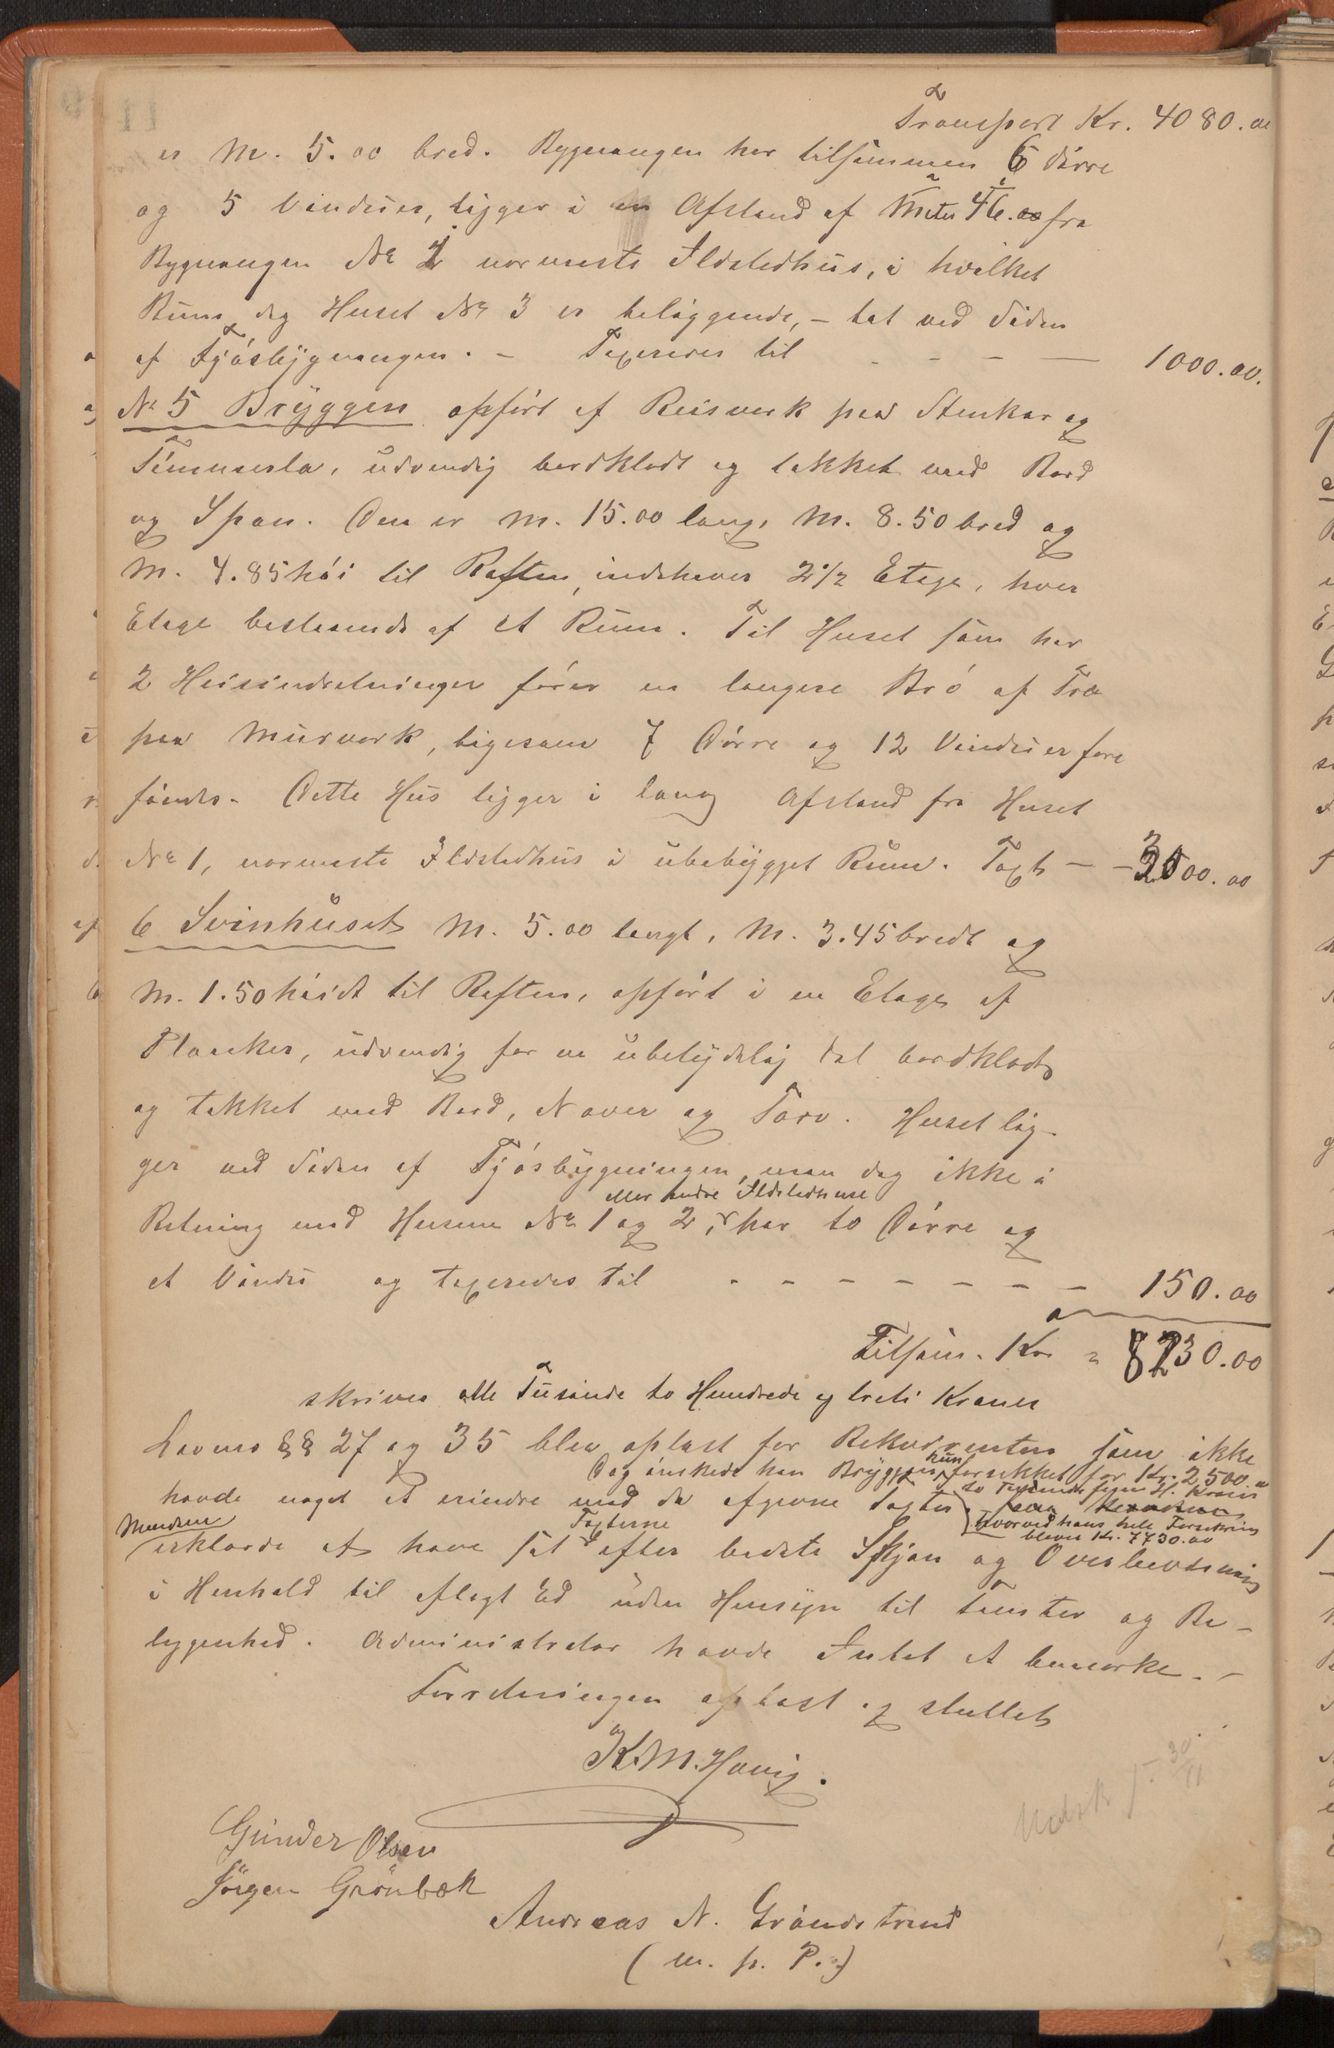 Transport Kr. 4080.00
er M. 5.00 bred. Bygnangen har tilsammen 6 Dörre
og 5 Vinduer, ligger i en Afstand af Meter 46.00 fra
Bygnangen No 1 nærmeste Ildstedhus, i hvilket
Rum dog Huset No 3 er beliggende, – tæt ved Siden
af Fjösbygnangen. – Taxeres til – – – – 1000.00.
No 5 Bryggen opfört af Reisverk paa Stenkar og
Tömmerla, udvendig bordklædt og tækket med Bord
og Spon. Den er M. 15.00 lang, M. 8.50 bred og
M. 4.85 höi til Raften, indehaver 2 1/2 Etage, hver
Etage bestaaende af et Rum. Til Huset som har
2 Heisindretninger förer en længere Bro af Træ
paa Murværk, ligesom 7 Dörre og 12 Vinduer fore
findes. Dette Hus ligger i lang Afstand fra Huset
No 1, nærmeste Ildstedhus i ubebygget Rum. Taxt – – 3000.00
6 Svinhuset M. 5.00 langt, M. 3.45 bredt og
M. 1.50 höidt til Raften, opfört i en Etage af
Planker, udvendig for en ubetydelig Del bordklædt
og tækket med Bord, Næver og Torv. Huset lig-
ger ved Siden af Fjösbygningen, men dog ikke i
eller andre Ildstedhuse
Retning med Husene No 1 og 2, har to Dörre og
et Vindu og taxeredes til – – – – – – – 150.00
Tilsam. Kr = 8230.00
skriver otte Tusinde to Hundrede og treti Kroner
Lovens §§ 27 og 35 blev oplæst for Rekvirenten som ikke
Dog önskede han Bryggen kun forsikket for Kr. 2500.00
to Tusinde fem H. Kroner
havde noget at erindre mod de afgivne Taxter
hvorved hans hele Forsikring
bliver Kr. 7730.00
Mændene
Taxterne
erklærde at have sat efter bedste Skjön og Overbevisning
i Henhold til aflagt Ed uden Hensyn til Tomter og Be-
liggenhed. Administrator havde Intet at bemærke. –
Forretningen oplæst og sluttet
K. M. Havig.
Gunder Olsen
Jörgen Grönbæk
Andreas N. Gröndstrand
(m. p. P.)
30/11